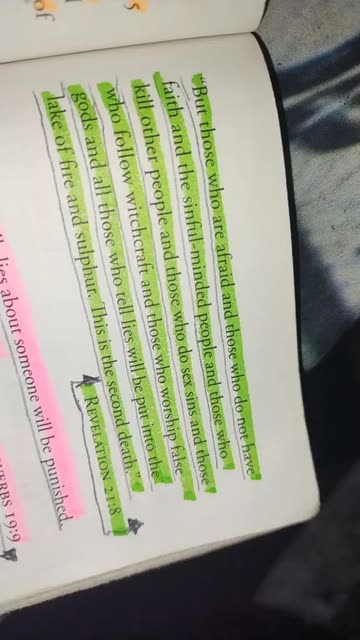 of
"But those who are afraid and those who do not have
faith and the sinful-minded people and those who
kill other people and those who do sex sins and those
who follow witchcraft and those who worship false
gods and all those who tell lies will be put into the
lake of fire and sulphur. This is the second death."
REVELATION 21:8
lies about someone will be punished.
19:9